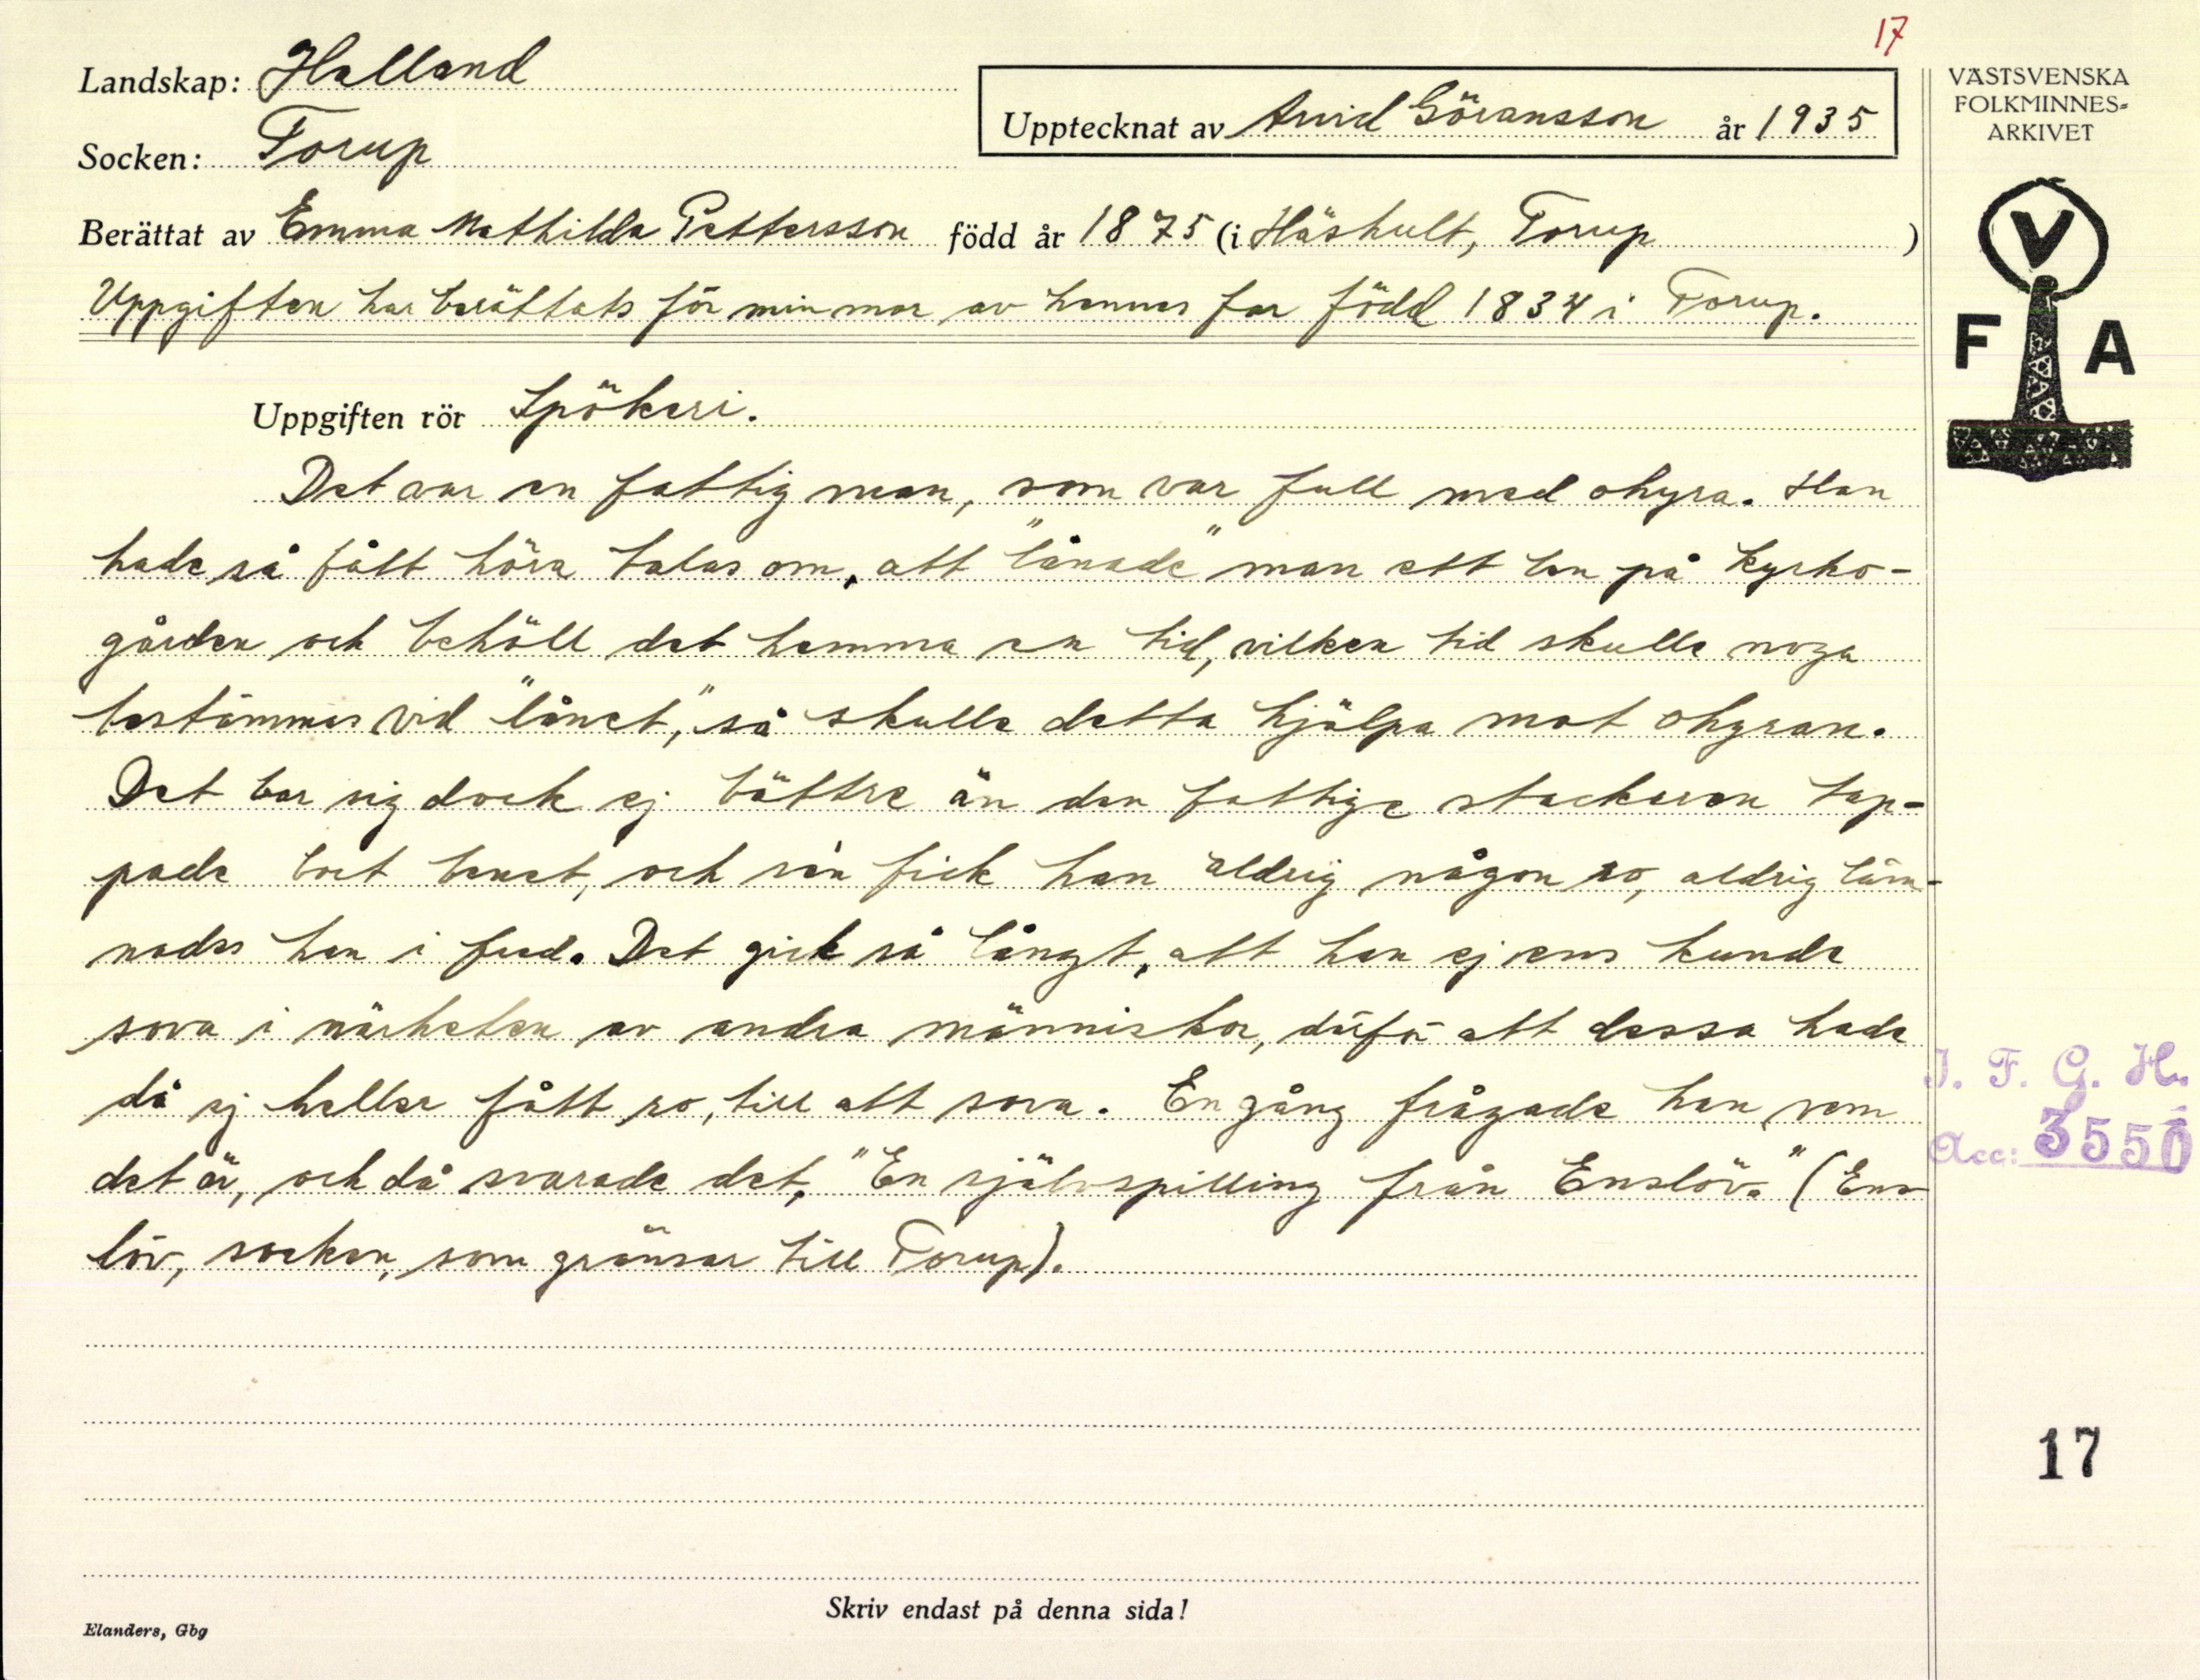 17
Landskap: Halland
Socken: Torup
Upptecknat av Arvid Göransson år 1935
Berättat av Emma Mathilda Pettersson född år 1875 (i Häshult, Torup )
Uppgiften har berättats för min mor av hennes far född 1834 i Torup.
Uppgiften rör Spökeri.
Det var en fattig man, som var full med ohyra. Han
hade så fått höra talas om, att "lånade" man ett ben på kyrko-
gården och behöll det hemma en tid, vilken tid skulle noga
bestämmas vid "lånet", så skulle detta hjälpa mot ohyran.
Det bar sig dock ej bättre än den fattige stackaren tap-
pade bort benet, och sén fick han aldrig någon ro, aldrig läm-
nades han i fred. Det gick så långt, att han ej ens kunde
sova i närheten av andra människor, därför att dessa hade
då ej heller fått ro, till att sova. En gång frågade han vem
det är, och då svarade det, "En självspilling från Enslöv." (Ens-
löv, socken, som gränsar till Torup).
VÄSTSVENSKA
FOLKMINNES-
ARKIVET
V
F A
I. F. G. H.
Acc: 3550
17
Skriv endast på denna sida!
Elanders, Gbg